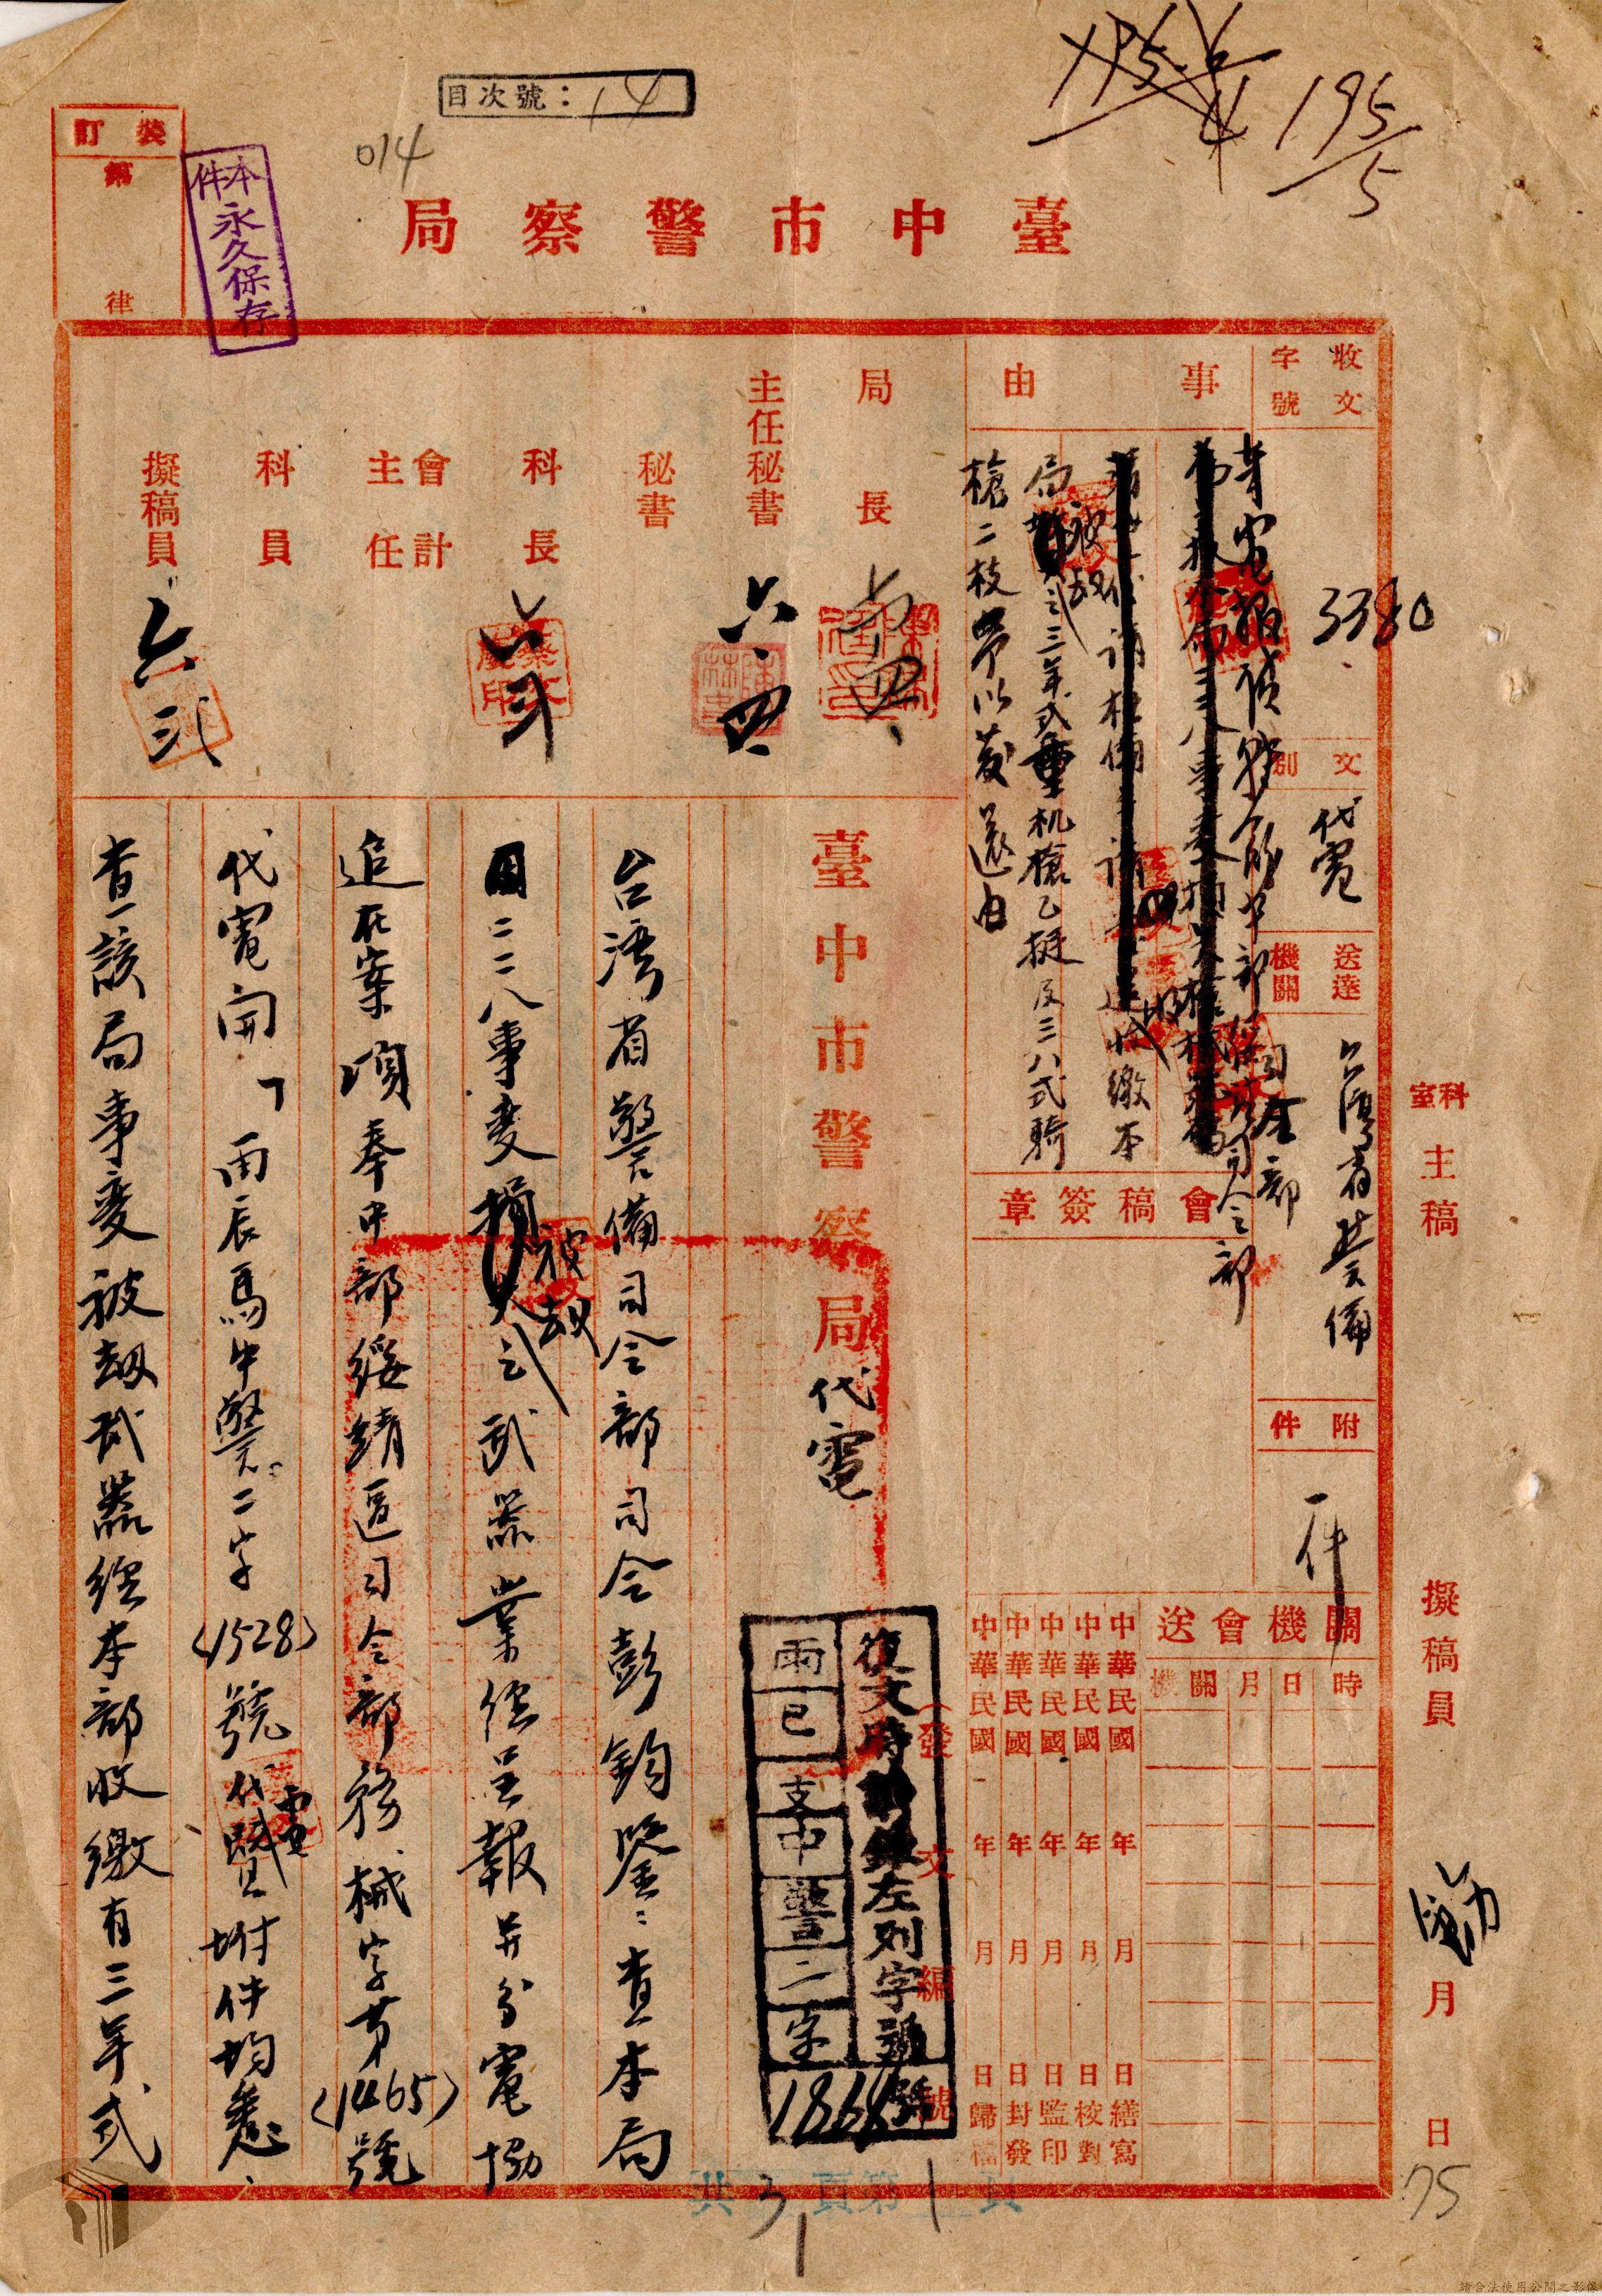 目次號：14
014
195/5
裝訂
第
律
本件永久保存
臺中市警察局
收文字號
3380
文別
代電
送達機關
台灣省警備司令部
附件
一件
事由
收繳本
局被劫之三年式重机槍乙挺及三八式騎
槍二枝予以發還由
會稿簽章
關機會送
時日月關機
中華民國年月日繕寫
中華民國年月日校對
中華民國年月日監印
中華民國年月日封發
中華民國年月日歸檔
局長
主任秘書
六、四
秘書
科長
會計主任
科員
擬稿員
科室主稿
擬稿員
月
日
75
發文編號
復文時左列字號
巳支中警二字
1868號
臺中市警察局代電
台灣省警備司令部司令彭鈞鑒：查本局
因二二八事變被劫之武器業經呈報并分電協
追在案項奉中部綏靖區司令部務械字第(1465)號
代電開「雨辰馬中警二字(1528)號代電暨附件均悉、
查該局事變被劫武器經本部收繳有三年式
共3頁第1頁
請合法使用公開之影像